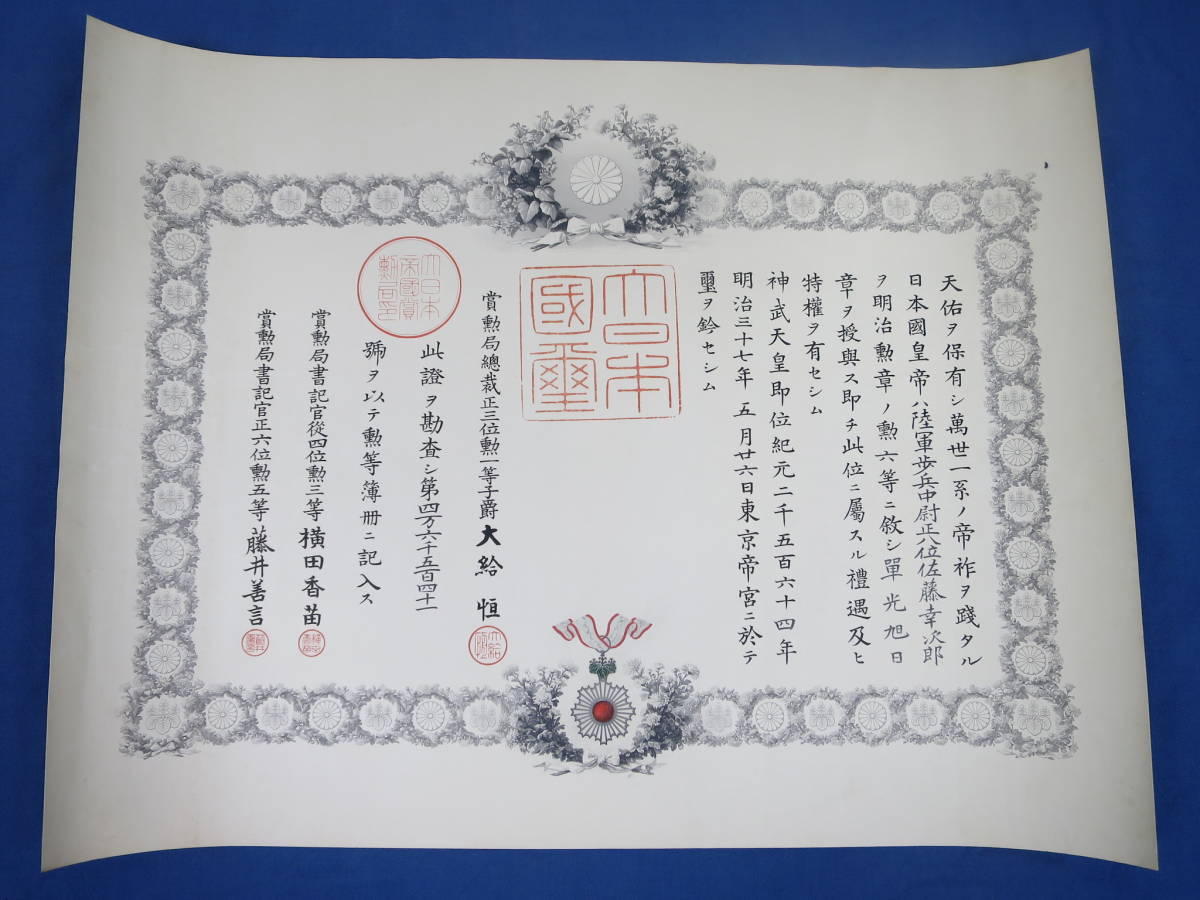 天佑ヲ保有シ萬世一系ノ帝祚ヲ踐タル
日本國皇帝ハ陸軍歩兵中尉正八位佐藤幸次郎
ヲ明治勲章ノ勲六等ニ敘シ單光旭日
章ヲ授與ス即チ此位ニ屬スル禮遇及ヒ
特權ヲ有セシム
神武天皇即位紀元二千五百六十四年
明治三十七年五月廿六日東京帝宮ニ於テ
璽ヲ鈐セシム
大日本國璽
賞勲局總裁正三位勲一等子爵大給恒
大日本帝國賞勲局印
此證ヲ勘査シ第四万六千五百四十一
號ヲ以テ勲等簿冊ニ記入ス
賞勲局書記官從四位勲三等横田香苗
賞勲局書記官正六位勲五等藤井善言